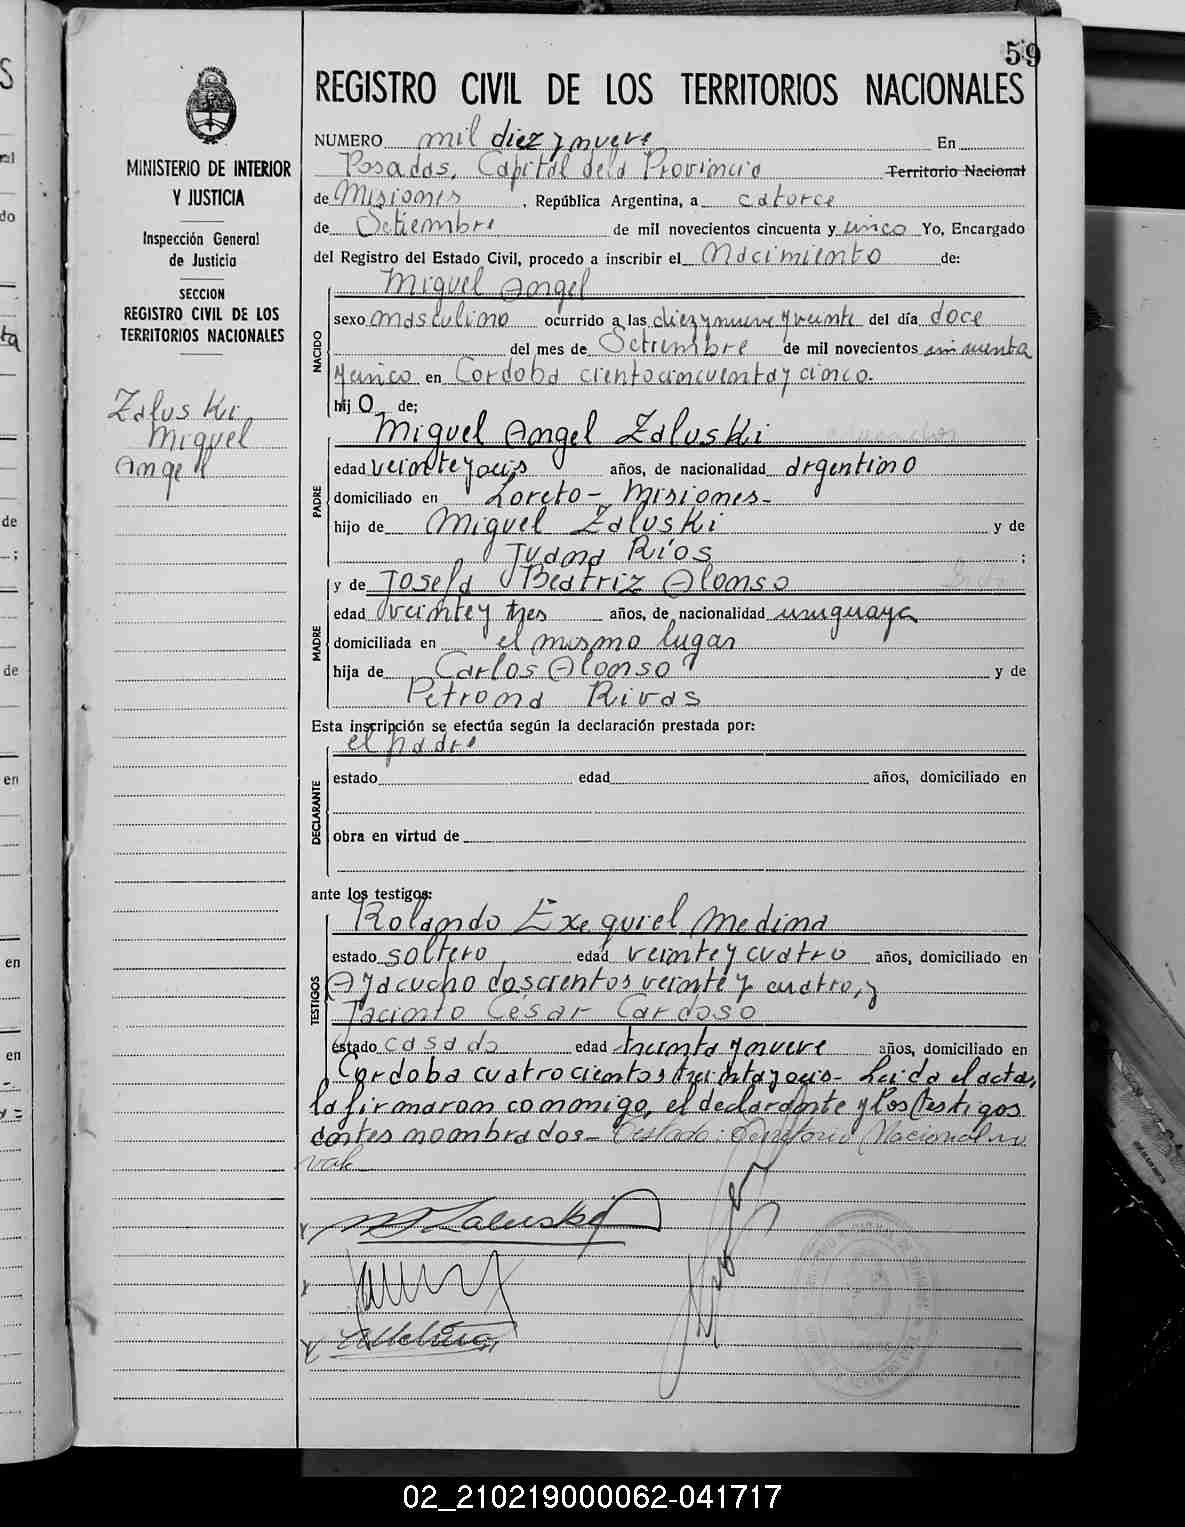 59
REGISTRO CIVIL DE LOS TERRITORIOS NACIONALES
MINISTERIO DE INTERIOR
Y JUSTICIA
Inspección General
de Justicia
SECCION
REGISTRO CIVIL DE LOS
TERRITORIOS NACIONALES
Zaluski
Miguel
Angel
NUMERO mil diez y nueve En
Posadas, Capital de la Provincia Territorio Nacional
de Misiones, República Argentina, a catorce
de Setiembre de mil novecientos cincuenta y cinco Yo, Encargado
del Registro del Estado Civil, procedo a inscribir el Nacimiento de:
Miguel Angel
NACIDO
sexo masculino ocurrido a las diez y nueve y veinte del día doce
del mes de Setiembre de mil novecientos cincuenta
y cinco en Cordoba ciento cincuenta y cinco.
hij o de;
Miguel Angel Zaluski
PADRE
edad veinte y seis años, de nacionalidad argentino
domiciliado en Loreto - Misiones -
hijo de Miguel Zaluski y de
Juana Ríos ;
y de Josefa Beatriz Alonso
MADRE
edad veinte y tres años, de nacionalidad uruguaya
domiciliada en el mismo lugar
hija de Carlos Alonso y de
Petrona Rivas
Esta inscripción se efectúa según la declaración prestada por:
el padre
DECLARANTE
estado edad años, domiciliado en
obra en virtud de
ante los testigos:
Rolando Exequiel Medina
TESTIGOS
estado soltero, edad veinte y cuatro años, domiciliado en
Ayacucho doscientos veinte y cuatro, y
Jacinto César Cardoso
estado casado edad treinta y nueve años, domiciliado en
Cordoba cuatrocientos treinta y seis - Leida el acta,
la firmaron conmigo, el declarante y los testigos
antes nombrados - Testado: Territorio Nacional no
vale
M Zaluski
02_210219000062-041717